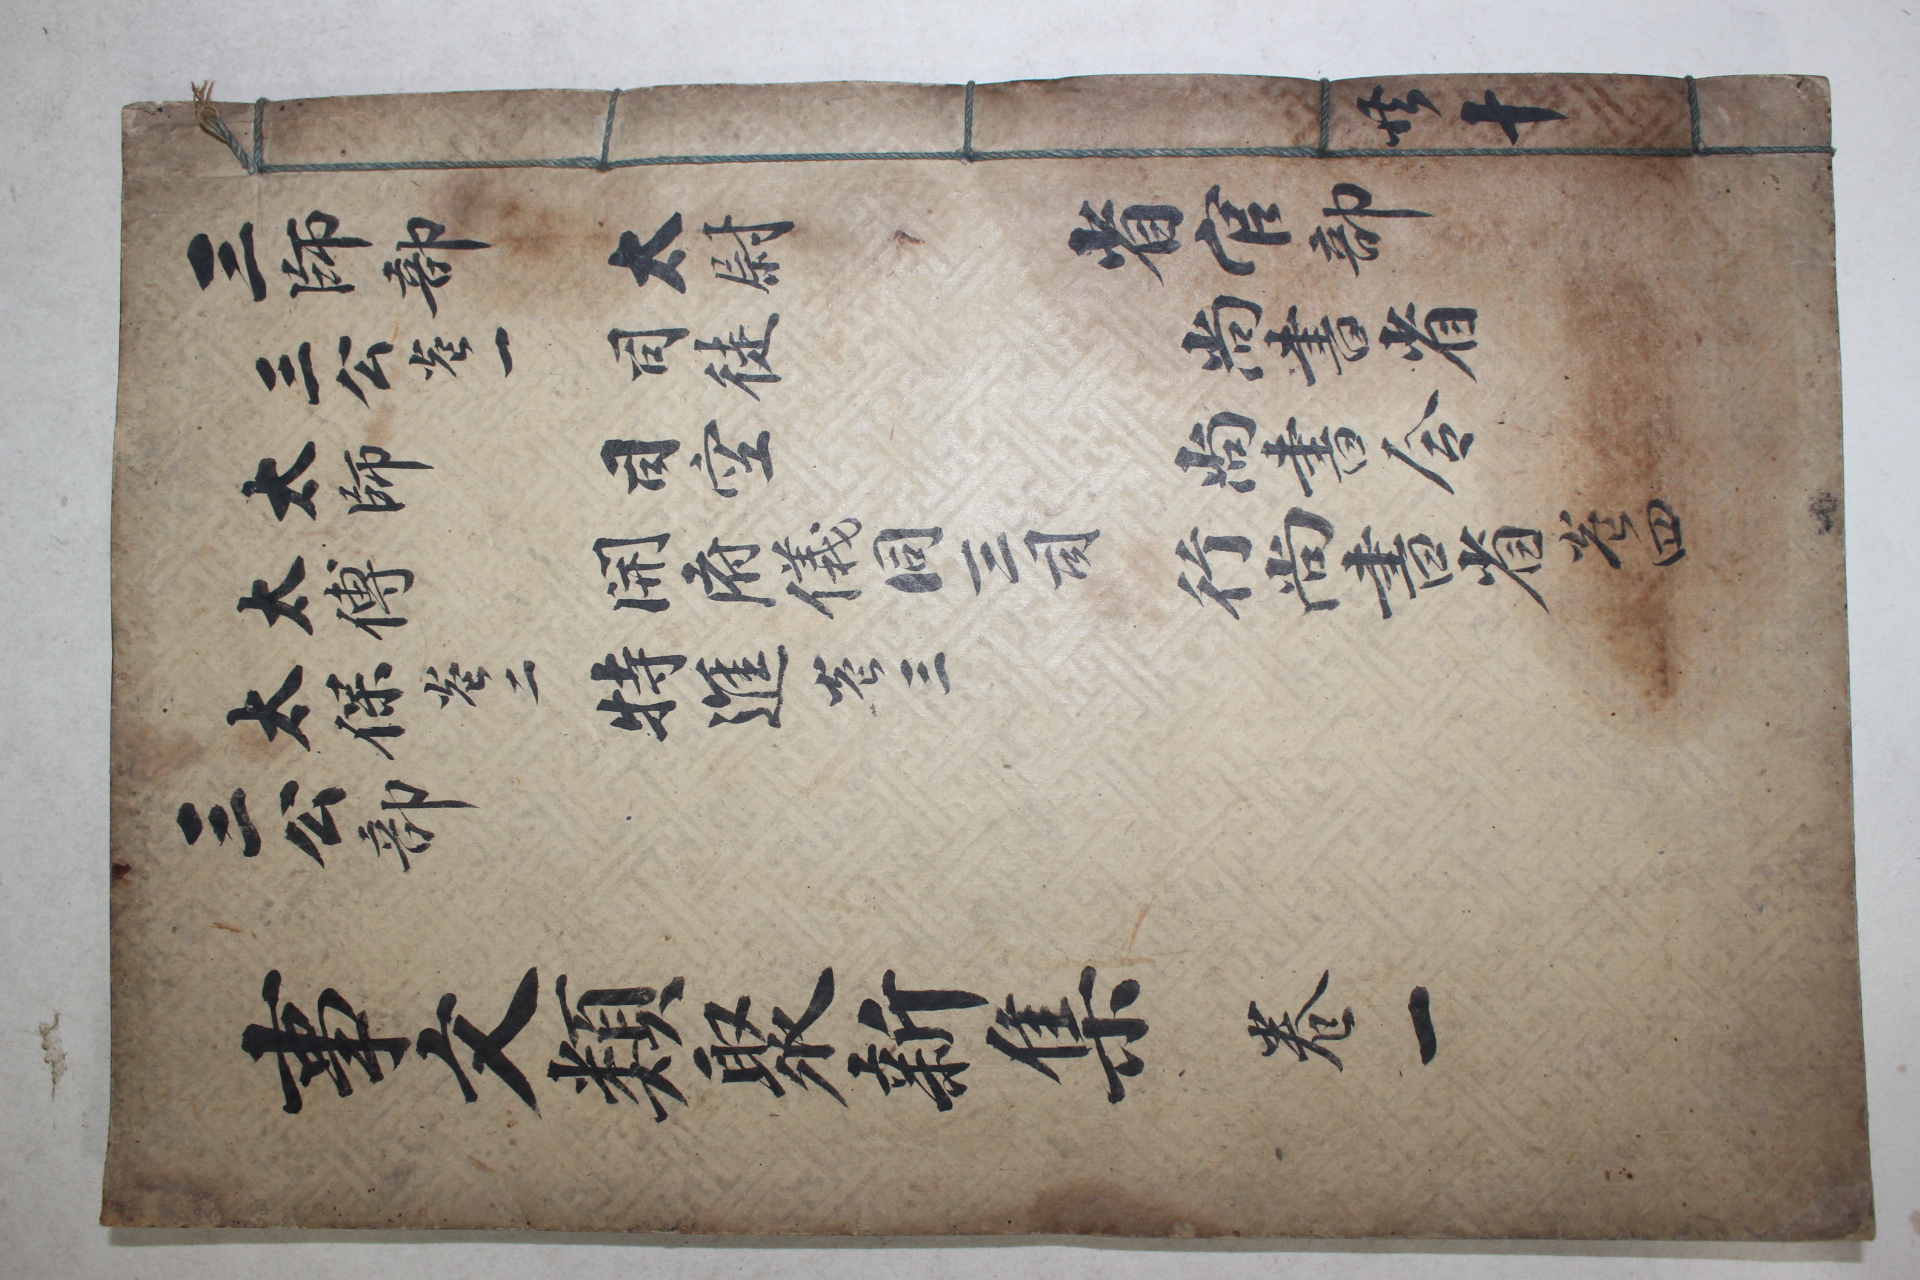 共十
三師部
三公卷一
太師
太傅
太保卷二
三公部
太尉
司徒
司空
開府儀同三司
特進卷三
省官部
尚書省
尚書令
行尚書省卷四
事文類聚新集 卷一